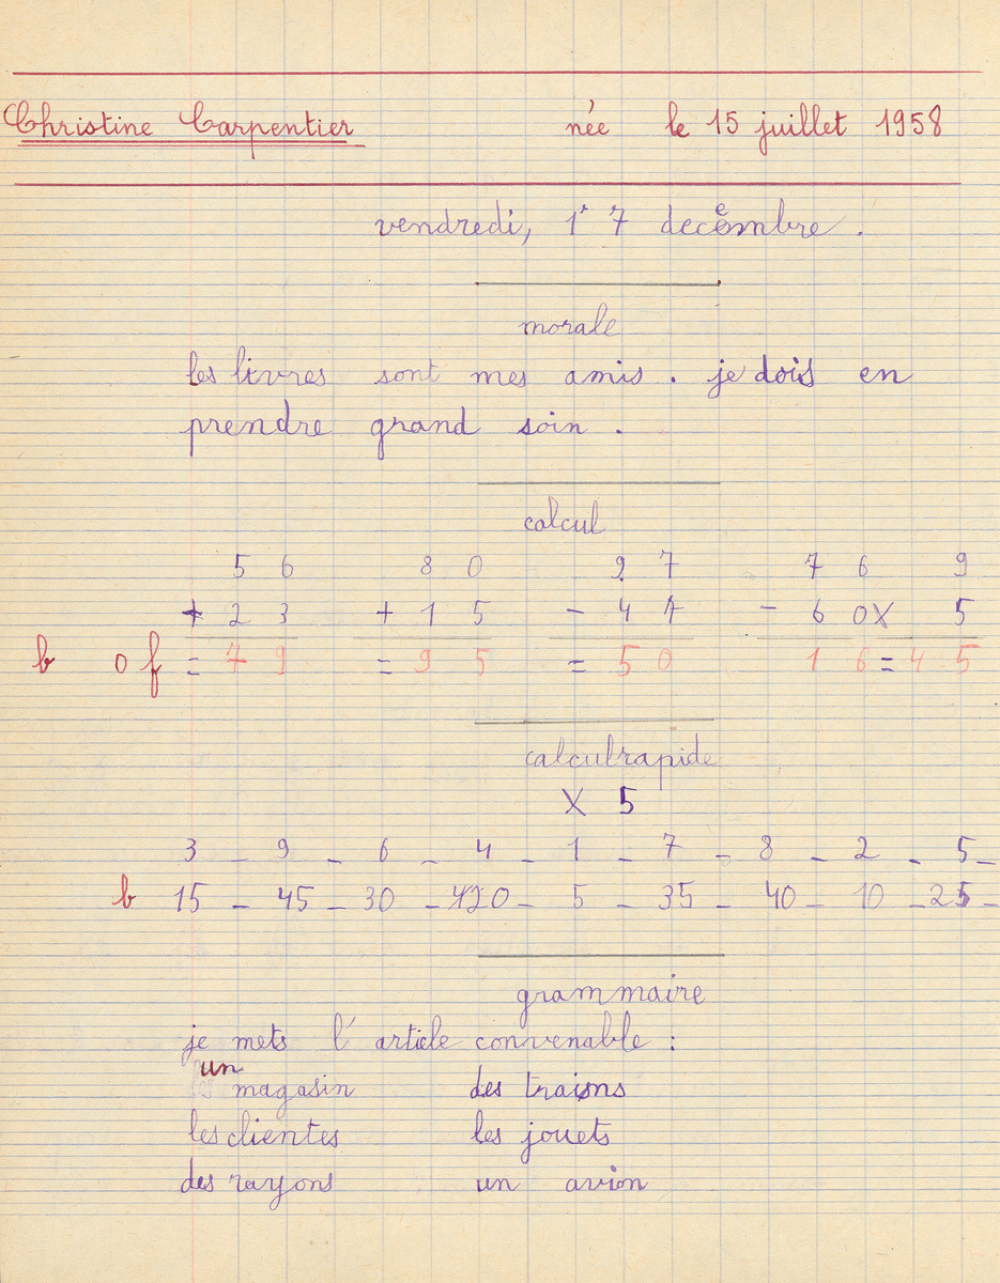 Christine Carpentier née le 15 juillet 1958
vendredi, 1r 7 decembre.
morale
les livres sont mes amis. je dois en
prendre grand soin.
calcul
5 6 8 0 9 7 7 6 9
+ 2 3 + 1 5 - 4 7 - 6 0 X 5
b 0 f = 7 9 = 9 5 = 5 0 1 6 = 4 5
calcul rapide
X 5
3 - 9 - 6 - 4 - 1 - 7 - 8 - 2 - 5 -
b 15 - 45 - 30 - 20 - 5 - 35 - 40 - 10 - 25 -
grammaire
je mets l'article convenable :
un
magasin des trains
les clientes les jouets
des rayons un avion